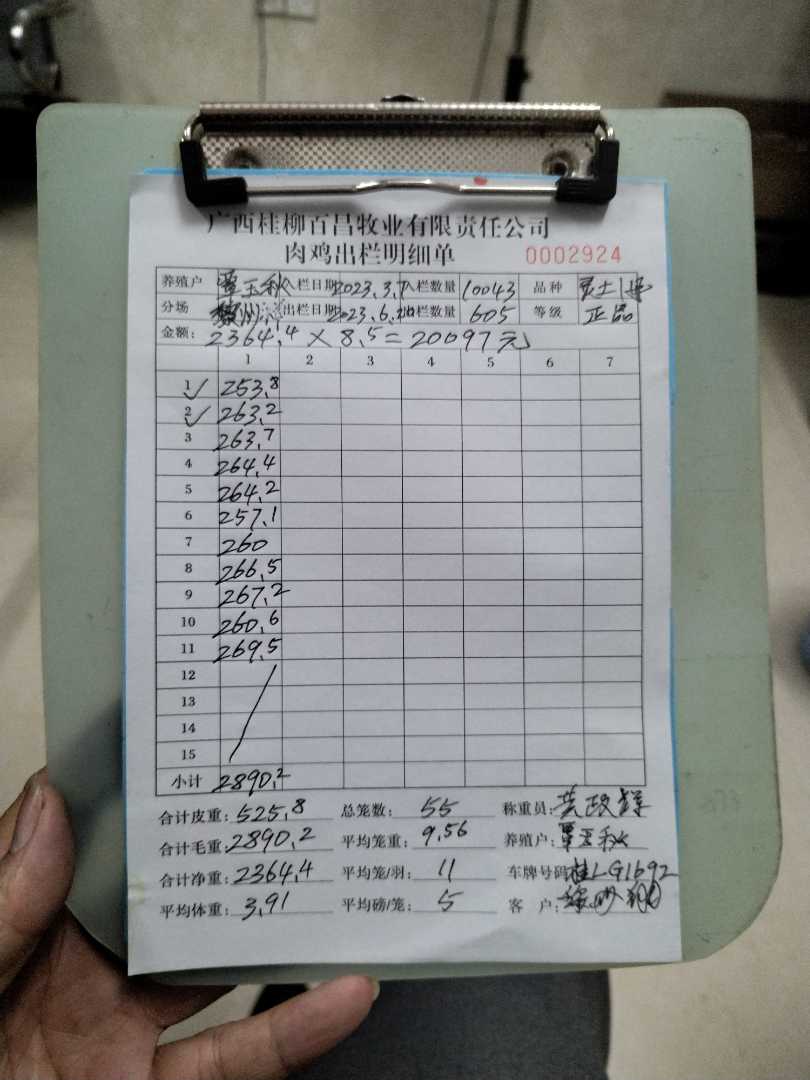 广西桂柳百昌牧业有限责任公司
肉鸡出栏明细单 0002924
养殖户 覃玉秋 入栏日期 2023.3.7 入栏数量 10043 品种
分场 出栏日期 2023.6.20 出栏数量 605 等级 正品
金额: 2364.4 × 8.5 = 20097元
1 2 3 4 5 6 7
1 ✓ 253.8
2 ✓ 263.2
3 263.7
4 264.4
5 264.2
6 257.1
7 260
8 266.5
9 267.2
10 260.6
11 269.5
12
13
14
15
小计 2890.2
合计皮重: 525.8 总笼数: 55 称重员:
合计毛重: 2890.2 平均笼重: 9.56 养殖户: 覃玉秋
合计净重: 2364.4 平均笼/羽: 11 车牌号码: 桂LG1692
平均体重: 3.91 平均磅/笼: 5 客 户: